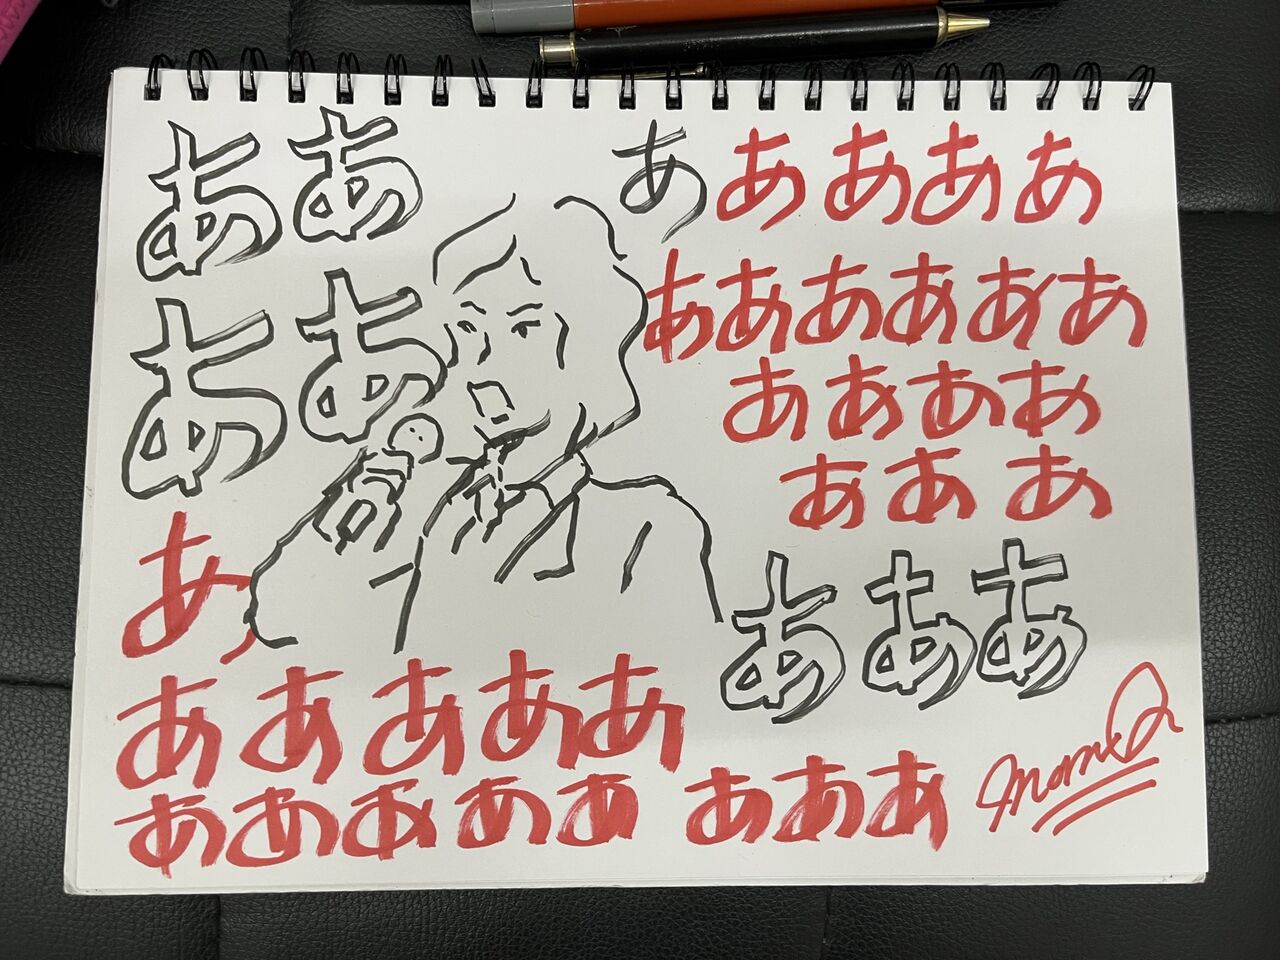 ああ
ああ
あ
あああああ
ああああああ
ああああ
あああ
あああ
あああああ
あああああ あああ